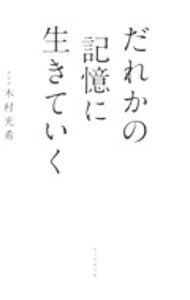 だれかの
記憶に
生きていく
木村光希